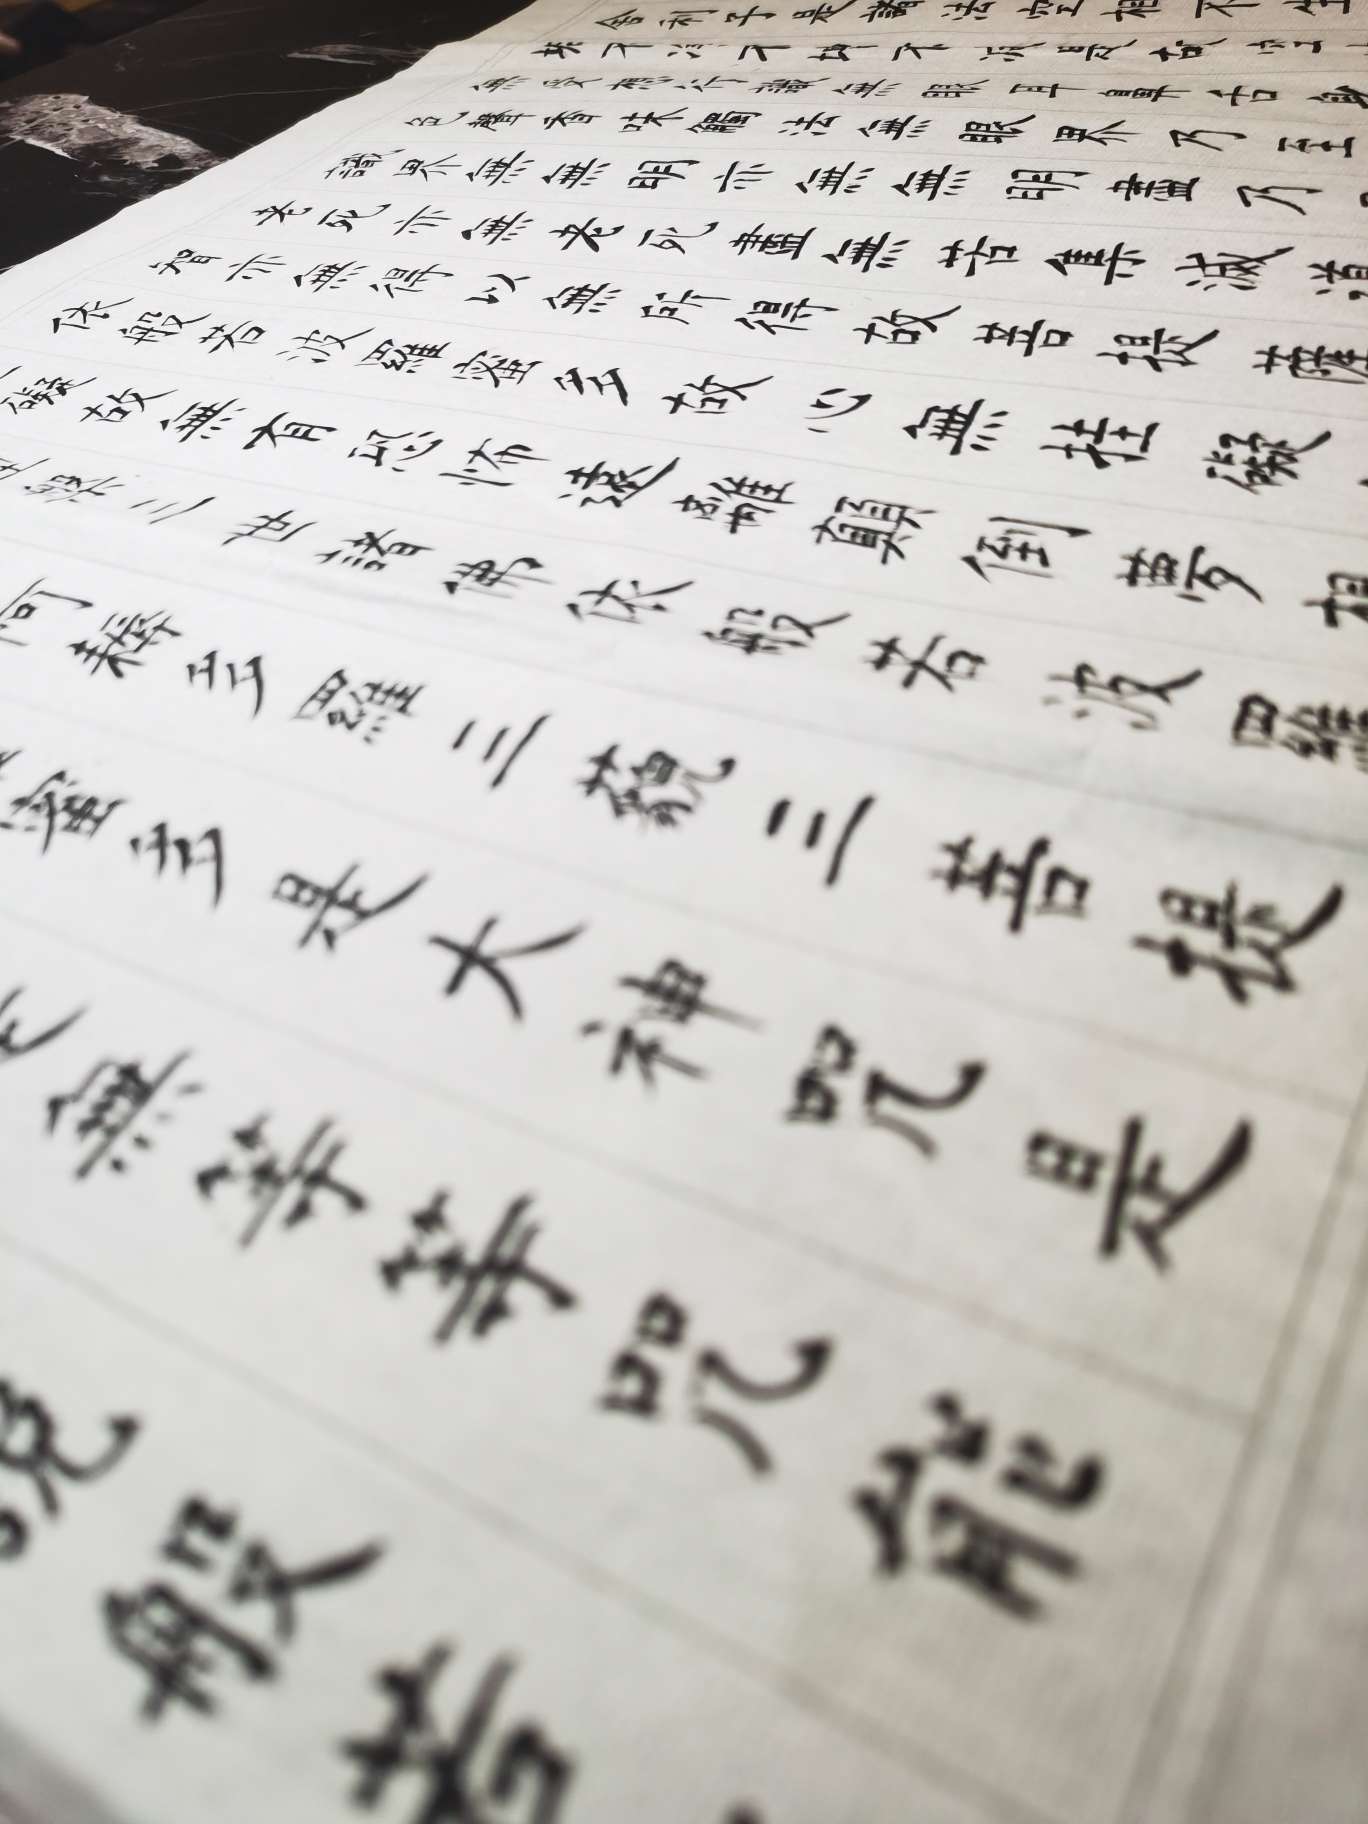 舍利子是諸法空相不生
垢不淨不增不減是故空
無受想行識無眼耳鼻舌身
色聲香味觸法無眼界乃至
識界無無明亦無無明盡乃
老死亦無老死盡無苦集滅道
智亦無得以無所得故菩提薩
依般若波羅蜜多故心無挂礙
礙故無有恐怖遠離顛倒夢想
槃三世諸佛依般若波羅
耨多羅三藐三菩提
蜜多是大神咒是
無等等咒能
說般若